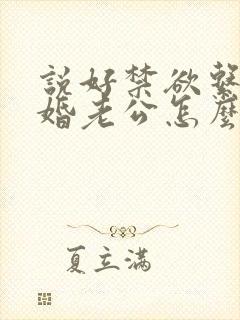 説好禁欲繫
婚老公怎麼
夏立滿